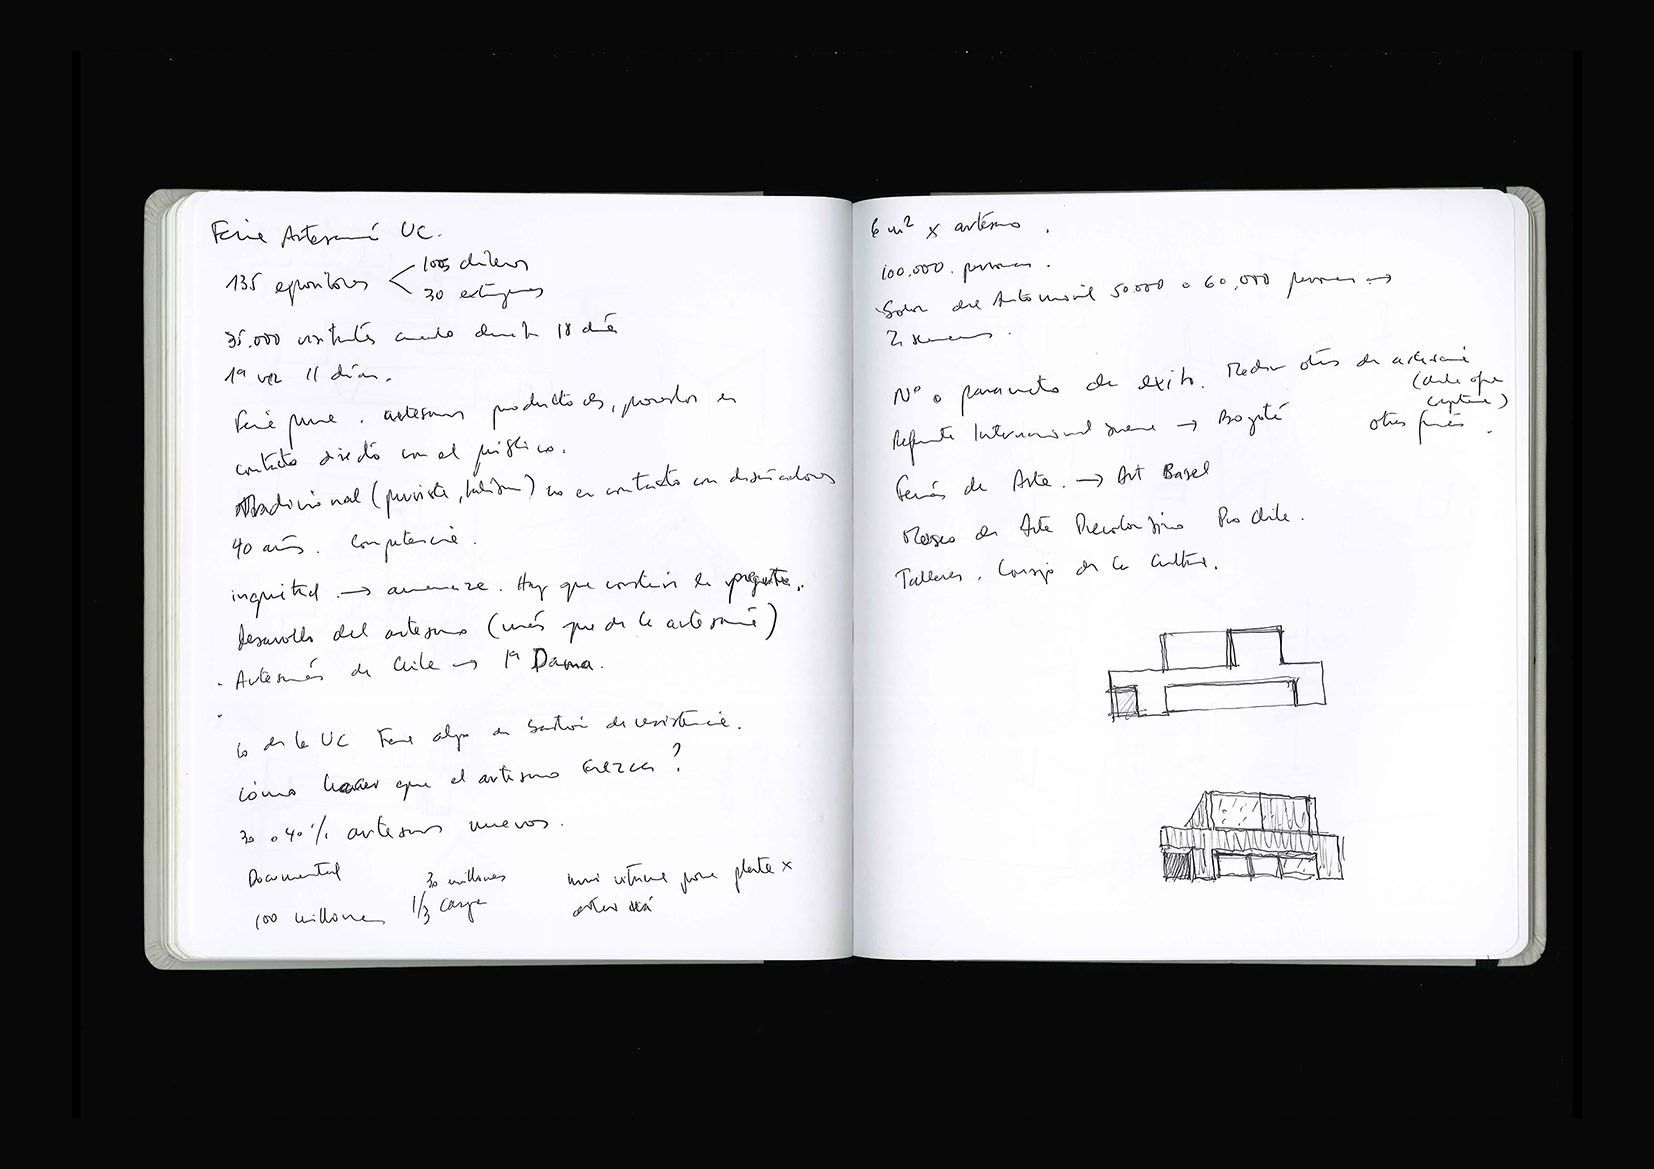 Feria Artesanía UC.
135 expositores < 100 chilenos
30 extranjeros
35.000 visitantes cuando duraba 18 días
1ª vez 11 días.
Feria pura. artesanos productores, ponerlos en
contacto directo con el público.
Tradicional (purista,) no en contacto con diseñadores
40 años. Competencia.
inquietud → amenaza. Hay que construir la pregunta.
Desarrollo del artesano (más que de la artesanía)
. Artesanías de Chile → 1ª Dama.
.
lo de la UC tiene algo de bastión de resistencia.
cómo hacer que el artesano crezca?
30 o 40% artesanos nuevos.
Documental 30 millones mini vitrina para planta x
100 millones 1/3 artesanía
6 m² x artesano.
100.000 personas.
Salón del Automóvil 50000 o 60,000 personas →
2 semanas.
Nº o parámetro de éxito. Medir otras de artesanía
(
)
Referente Internacional → Bogotá otras ferias.
Ferias de Arte. → Art Basel
Museo de Arte Precolombino Pro Chile.
Talleres. Consejo de la Cultura.